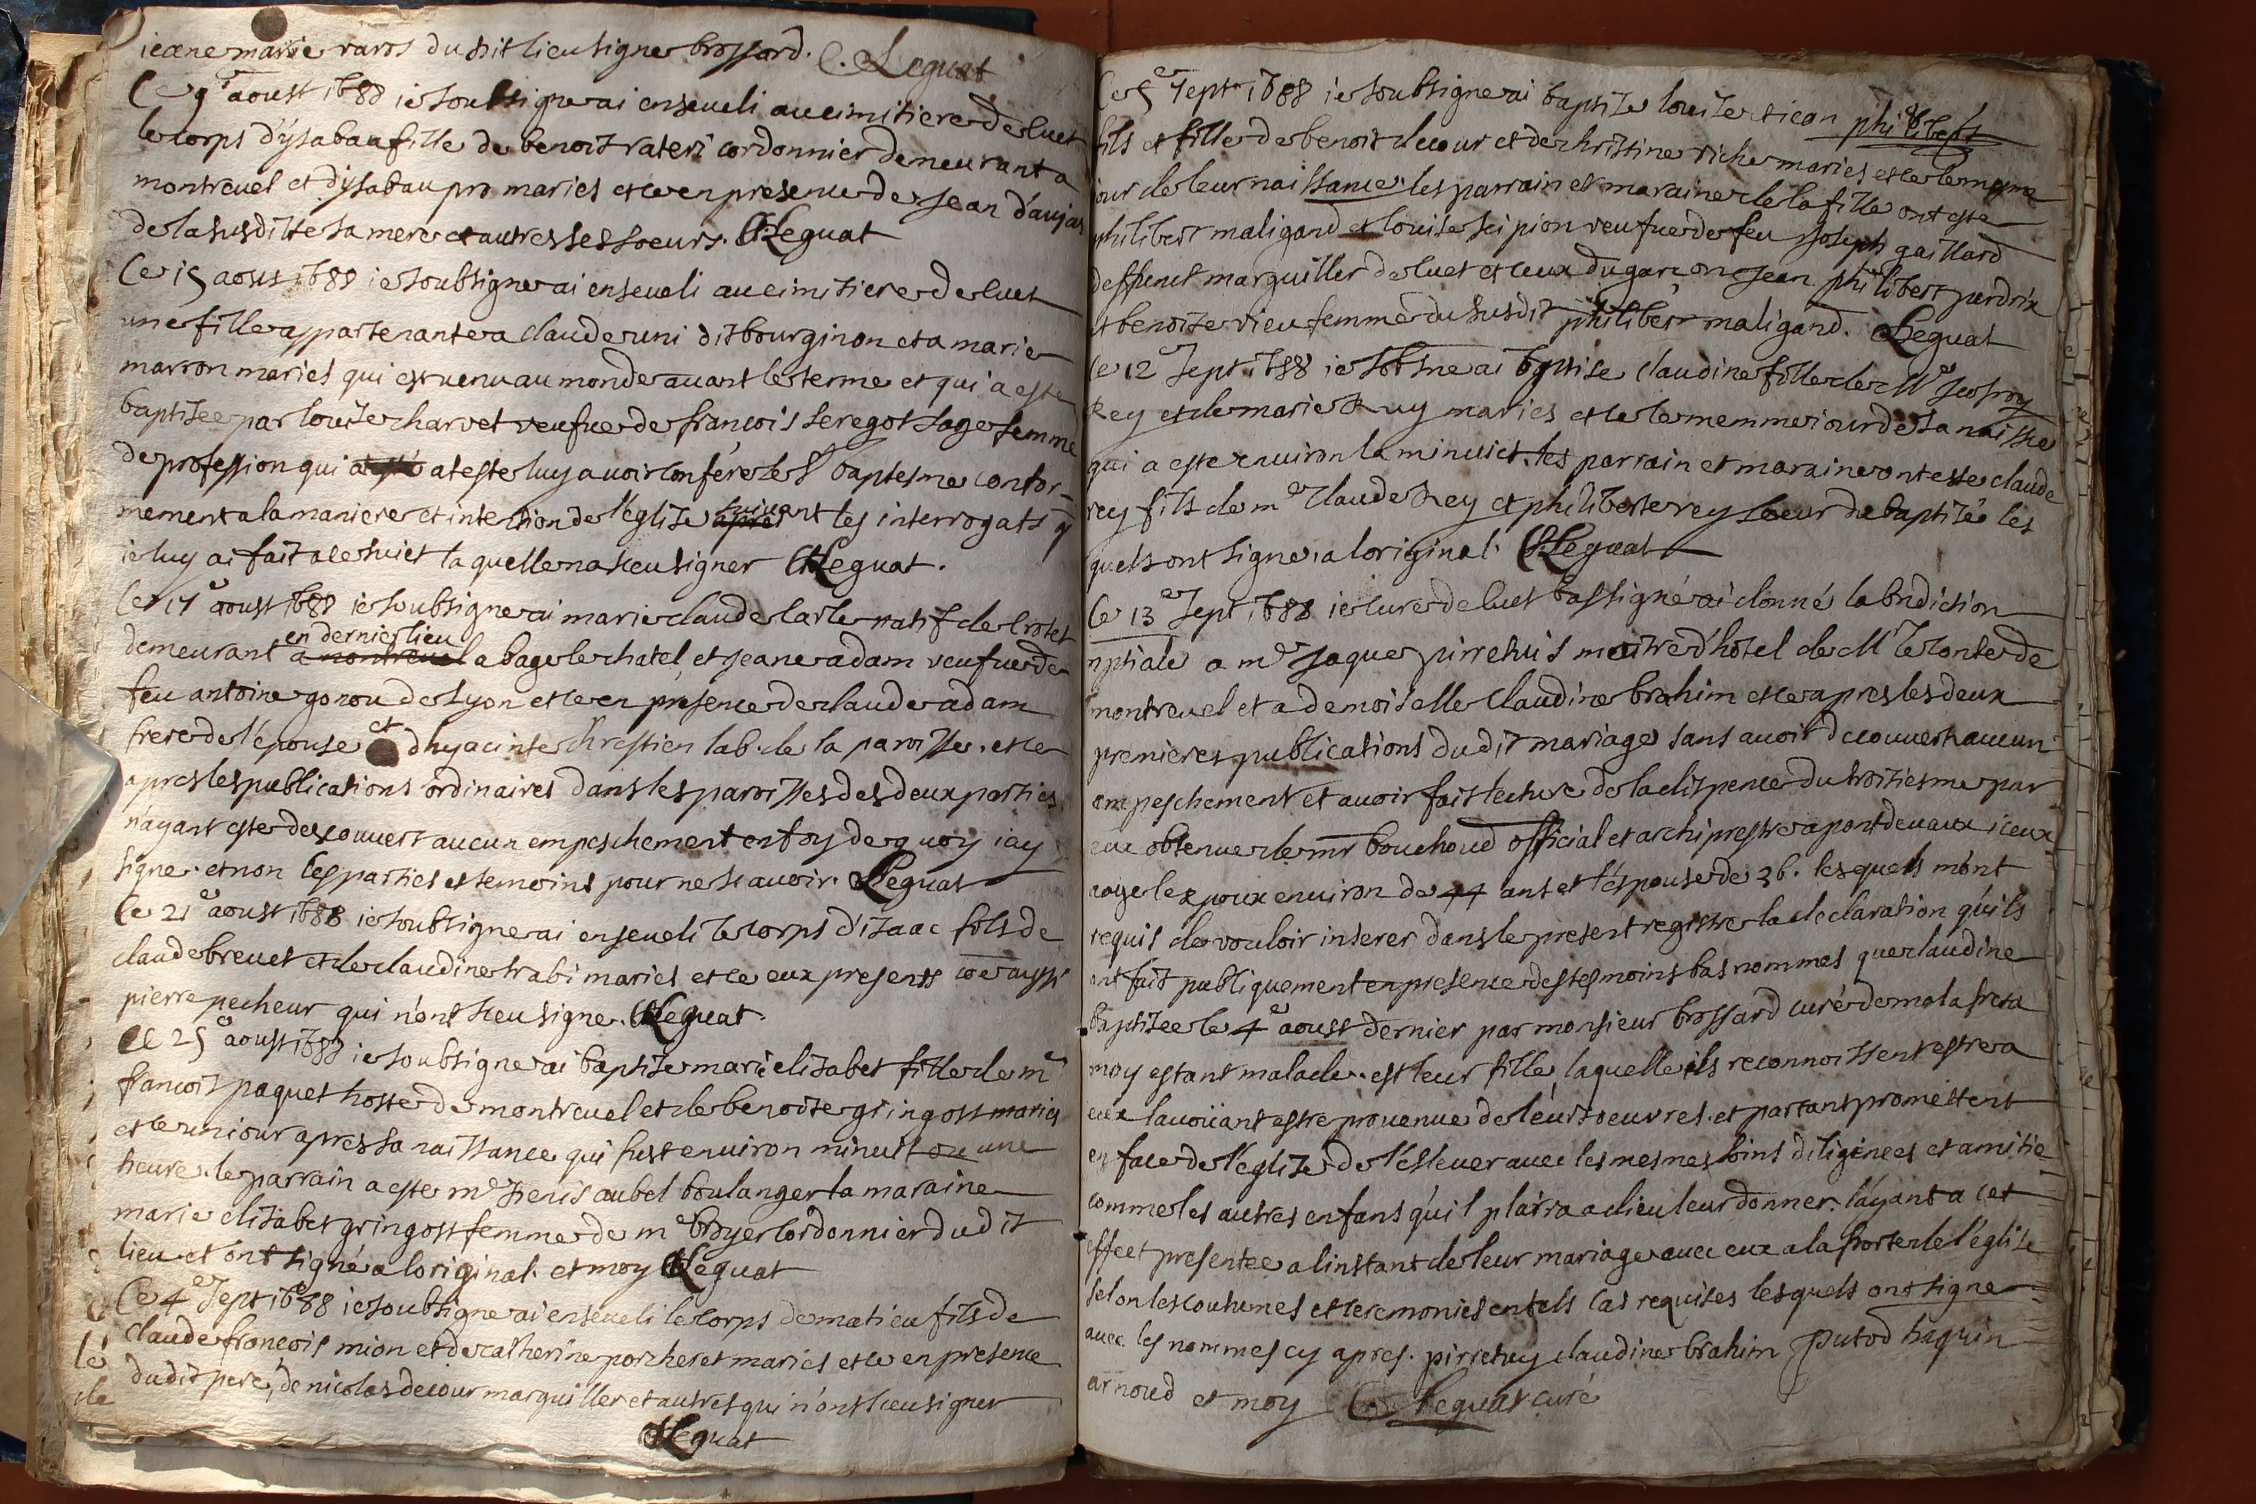 jeane marie varos dudit lieu signe brossard. C. Leguat
Ce 9e aoust 1688 ie soubsigne ai enseueli au cimitiere de luet
le corps d'ysabau fille de benoit rateri cordonnier demeurant a
montreuel et d'ysabau pro maries et ce en presence de jean d'aujas
de la susditte sa mere et autres ses soeurs. CLeguat
Ce 15 aoust 1688 ie soubsigne ai enseueli au cimitiere de luet
une fille appartenante a claude uni dit bourginon et a marie
marron maries qui est venu au monde auant le terme et qui a este
baptisee par louise charvet veufue de francois seregot sage femme
de profession qui a este ateste luy auoir conféré le St baptesme confor-
mement a la maniere et intention de l'église suiuant les interrogats q
ie luy ai fait a ce suiet laquelle na sceu signer CLeguat.
Ce 17e aoust 1688 ie soubsigne ai marie claude carle natif de crotet
en dernier lieu
demeurant a montreuel a bage le chatel, et jeane adam veufue de
feu antoine gonou de Lyon et ce en présence de claude adam
frere de l'épouse et d'hyacinte chrestien lab. de la paroisse. et ce
apres les publications ordinaires dans les paroisses des deux parties,
n'ayant este descouuert aucun empeschement en foy de quoy iay
signe. et non les parties et temoins pour ne scauoir. CLeguat
Ce 21e aoust 1688 ie soubsigne ai enseueli le corps d'isaac fils de
claude breuet et de claudine trabi maries et ce eux presents coe aussi
pierre pecheur qui n'ont sceu signe. CLeguat.
Ce 25e aoust 1688 ie soubsigne ai baptise marie elisabet fille de mr
francois paquet hoste de montreuel et de benoite gringost maries
et ce un iour apres sa naissance qui fust enuiron minuit ou une
heure. le parrain a este mr denis aubel boulanger la maraine
marie elisabet gringost femme de mr broyer cordonnier dudit
lieu et ont signé a loriginal. et moy CLeguat
Ce 4e Sept 1688 ie soubsigne ai enseueli le corps de matieu fils de
claude francois mion et de catherine porcheret maries et ce en presence
dudit pere, de nicolas decour marguiller et autres qui n'ont sceu signer
CLeguat
lé
de
Ce 5e Sept 1688 ie soubsigne ai baptise louise et iean philibert
fils et fille de benoit decour et de christine riche maries et ce le mesme
iour de leur naissance. les parrain et maraine de la fille ont este
philibert maligand et louise scipion veufue de feu joseph gaillard
deffunct marguiller de luet et ceux du garçon jean philibert perdrix
et benoite vieu femme du susdit philibert maligand. CLeguat
Ce 12e Sept 1688 ie sobsne ai bptise claudine fille de Mr
Rey et de marie Ruy maries et ce le memme iour de sa naissce
qui a este enuiron la minuict. les parrain et maraine ont este claude
rey fils de mr claude Rey et philiberte rey soeur de baptisée les
quels ont signe a loriginal. CLeguat
Ce 13e Sept 1688 ie cure de luet bas signé ai donné la bndiction
nptiale a mr Jaque pirrethuis maitre d'hotel de Mr le conte de
montreuel et a demoiselle Claudine brahim et ce apres les deux
premieres publications dudit mariage sans auoir decouuert aucun
empeschement et auoir fait lecture de la dispence du troisiesme par
eux obtenue de mr bouchoud official et archiprestre a pontdeuaux iceux
aage lepoux enuiron de 44 ans et léspouse de 36. lesquels m'ont
requis de vouloir inserer dans le present registre la declaration qu'ils
ont fait publiquement en presence des tesmoins bas nommes que claudine
baptisee le 4e aoust dernier par monsieur brossard curé de malafreta
moy estant malade. est leur fille, laquelle ils reconnoissent estre a
eux lauoüant estre prouenue de leurs oeuvres. et partant promettent
en face de l'église de l'esleuer auec les mesmes soins diligences et amitie
comme les autres enfans qu'il plaira a dieu leur donner. l'ayant a cet
effect presentee a linstant de leur mariage auec eux a la porte de l'église
selon les coutumes et ceremonies en tels cas requises lesquels ont signe
auec les nommes cy apres. pirrethuy claudine brahim Putod haquin
arnoud et moy C. Leguat curé